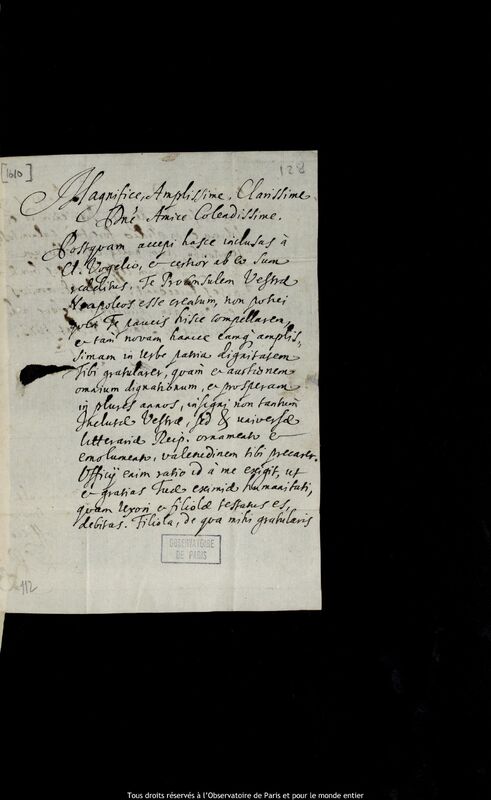 [1610]
128
Magnifice, Amplissime, Clarissime
Dne Amice Colendissime.
Postquam accepi hasce inclusas à
Cl. Vogelio, & certior ab eo sum
redditus, Te Proconsulem Vestræ
Neapoleos esse creatum, non potui
quin Te paucis hisce compellarem,
& tam novam hance eamq; amplis-
simam in Urbe patria dignitatem
Tibi gratularer, quam & auctionem
omnium dignationum, & prosperam
in plures annos, insigni non tantum
Vestræ, sed & universæ
litterariæ Reip. ornamento &
emolumento, valetudinem tibi precarer.
Officij enim ratio id à me exigit, ut
& gratias Tuæ eximiæ humanitati,
quam Uxori & filiolæ testatus es,
debitas. Filiola, de qua mihi gratularis
OBSERVATOIRE
DE PARIS
112
Tous droits réservés à l'Observatoire de Paris et pour le monde entier